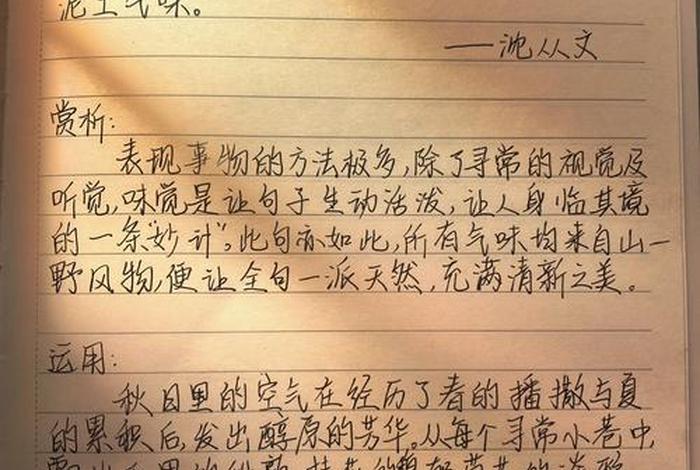 泥土气味。
——沈从文
赏析:
表现事物的方法极多,除了寻常的视觉及
听觉,味觉是让句子生动活泼,让人身临其境
的一条“妙计”。此句亦如此,所有气味均来自山一
野风物,便让全句一派天然,充满清新之美。
运用:
秋日里的空气在经历了春的播撒与夏
的累积后,发出醇原的芳华。从每个寻常小巷中,